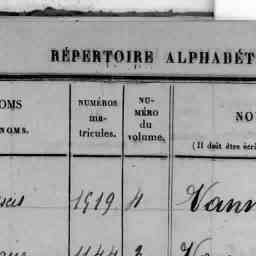 RÉPERTOIRE ALPHABÉT
OMS
NOMS.
NUMÉROS
ma-
tricules.
NU-
MÉRO
du
volume.
NO
(Il doit être écri
1919 4 Vann
1144 3